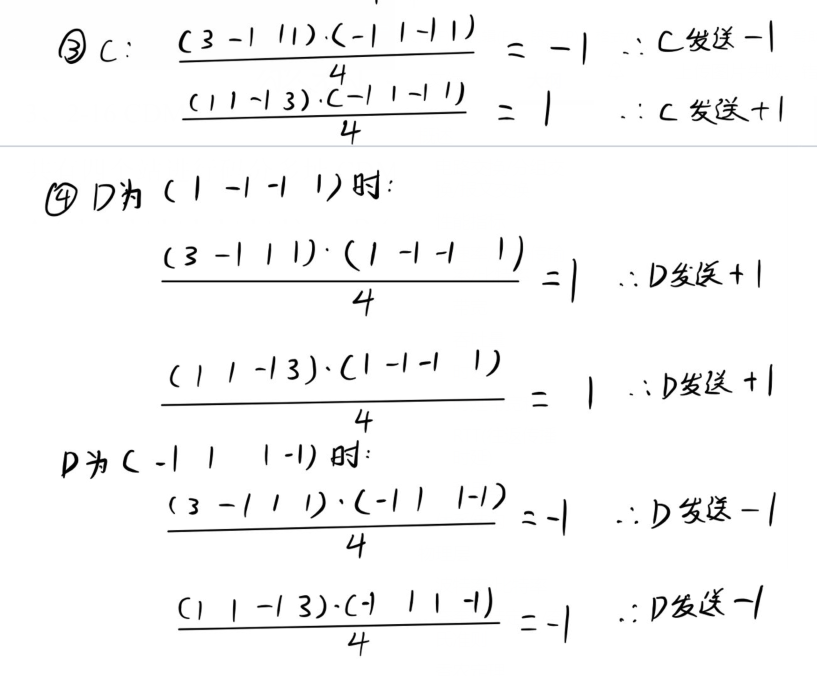 ③ C: (3 -1 1 1)·(-1 1 -1 1) / 4 = -1 ∴ C发送-1
(1 1 -1 3)·(-1 1 -1 1) / 4 = 1 ∴ C发送+1
④ D为 (1 -1 -1 1)时:
(3 -1 1 1)·(1 -1 -1 1) / 4 = 1 ∴ D发送+1
(1 1 -1 3)·(1 -1 -1 1) / 4 = 1 ∴ D发送+1
D为(-1 1 1 -1)时:
(3 -1 1 1)·(-1 1 1 -1) / 4 = -1 ∴ D发送-1
(1 1 -1 3)·(-1 1 1 -1) / 4 = -1 ∴ D发送-1